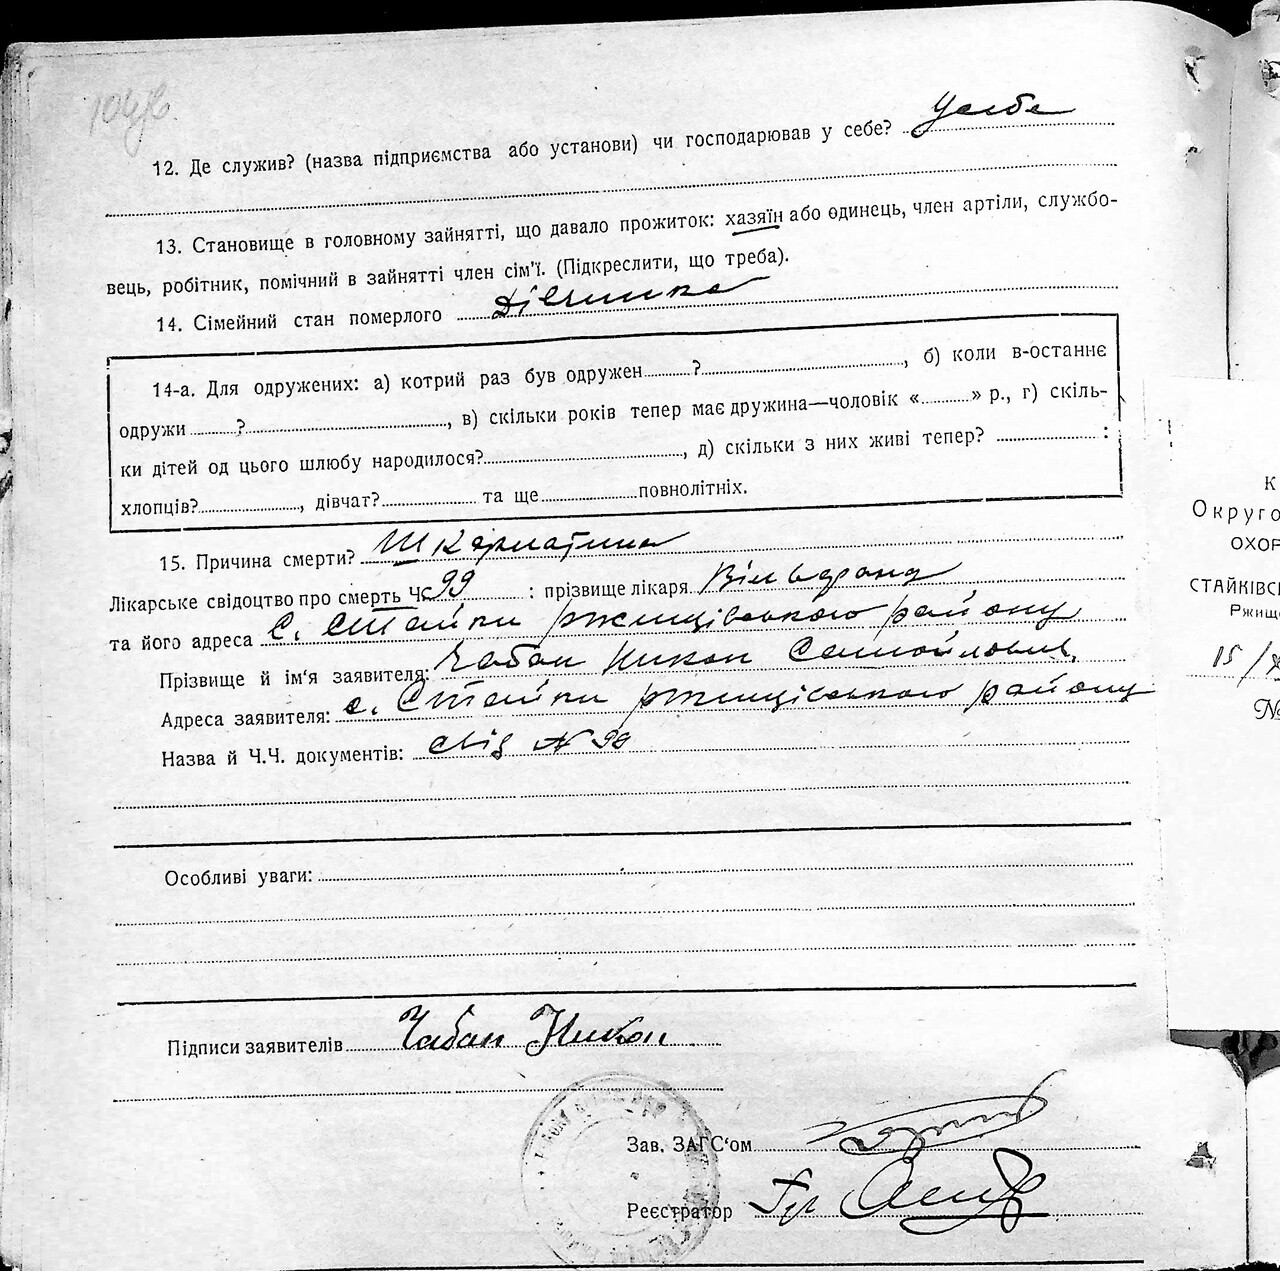 104
12. Де служив? (назва підприємства або установи) чи господарював у себе? У себе
13. Становище в головному зайнятті, що давало прожиток: хазяїн або одинець, член артіли, службо-
вець, робітник, помічний в зайнятті член сім'ї. (Підкреслити, що треба).
14. Сімейний стан померлого Дівчинка
14-а. Для одружених: а) котрий раз був одружен ? , б) коли в-останнє
одружи ? , в) скільки років тепер має дружина—чоловік « » р., г) скіль-
ки дітей од цього шлюбу народилося? , д) скільки з них живі тепер? :
хлопців? , дівчат? та ще повнолітніх.
15. Причина смерти? Шкарлатина
Лікарське свідоцтво про смерть Ч. 99 : прізвище лікаря
та його адреса С. Стайки ржищівського району
Прізвище й ім'я заявителя: Чабан Никон Самойлович
Адреса заявителя: с. Стайки ржищівського району
Назва й Ч.Ч. документів: свід N 99
Особливі уваги:
Підписи заявителів Чабан Никон
Зав. ЗАГС'ом
Реєстратор
К
Округо
ОХОР
СТАЙКІВС
Ржищ
15/X
№